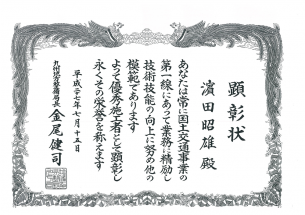 顕彰状
濵田昭雄 殿
あなたは常に国土交通事業の
第一線にあって業務に精励し
技術技能の向上に努め他の
模範であります
よって優秀施工者として顕彰し
永くその栄誉を称えます
平成二十二年七月十五日
九州地方整備局長
金尾健司